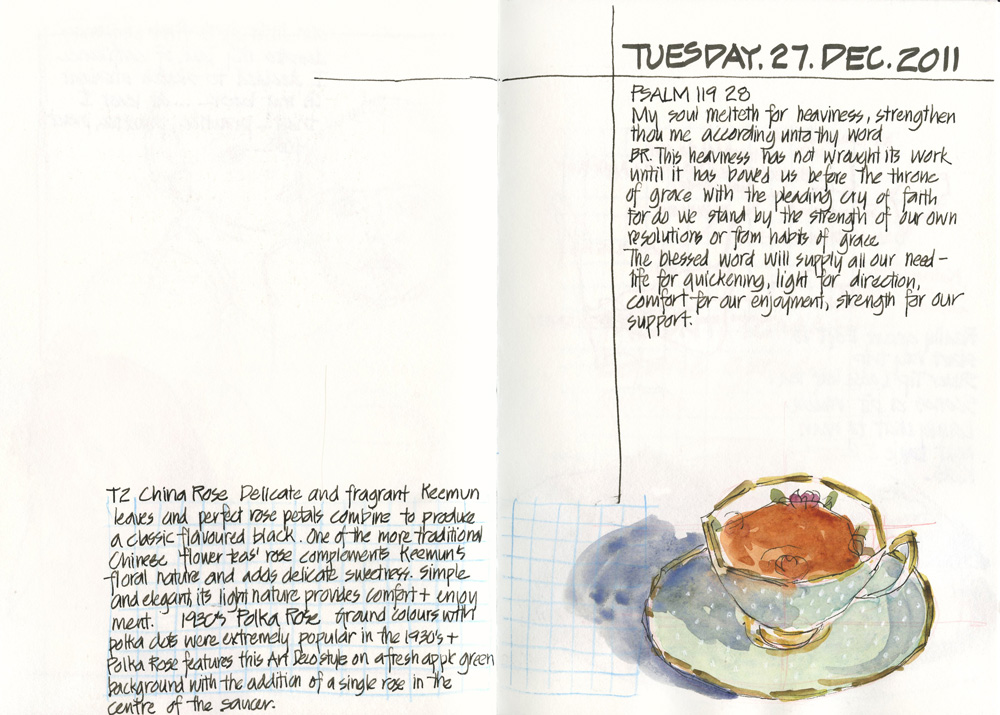 TUESDAY. 27. DEC. 2011
PSALM 119 28
My soul melteth for heaviness, strengthen
thou me according unto thy word
BR. This heaviness has not wrought its work
until it has bowed us before the throne
of grace with the pleading cry of faith
for do we stand by the strength of our own
resolutions or from habits of grace
The blessed word will supply all our need -
life for quickening, light for direction,
comfort for our enjoyment, strength for our
support.
T2 China Rose Delicate and fragrant Keemun
leaves and perfect rose petals combine to produce
a classic flavoured black. One of the more traditional
Chinese 'flower teas' rose complements Keemun's
floral nature and adds delicate sweetness. Simple
and elegant, its light nature provides comfort + enjoy
ment. 1930's Polka Rose Ground colours with
polka dots were extremely popular in the 1930's +
Polka Rose features this Art Deco style on a fresh apple green
background with the addition of a single rose in the
centre of the saucer.